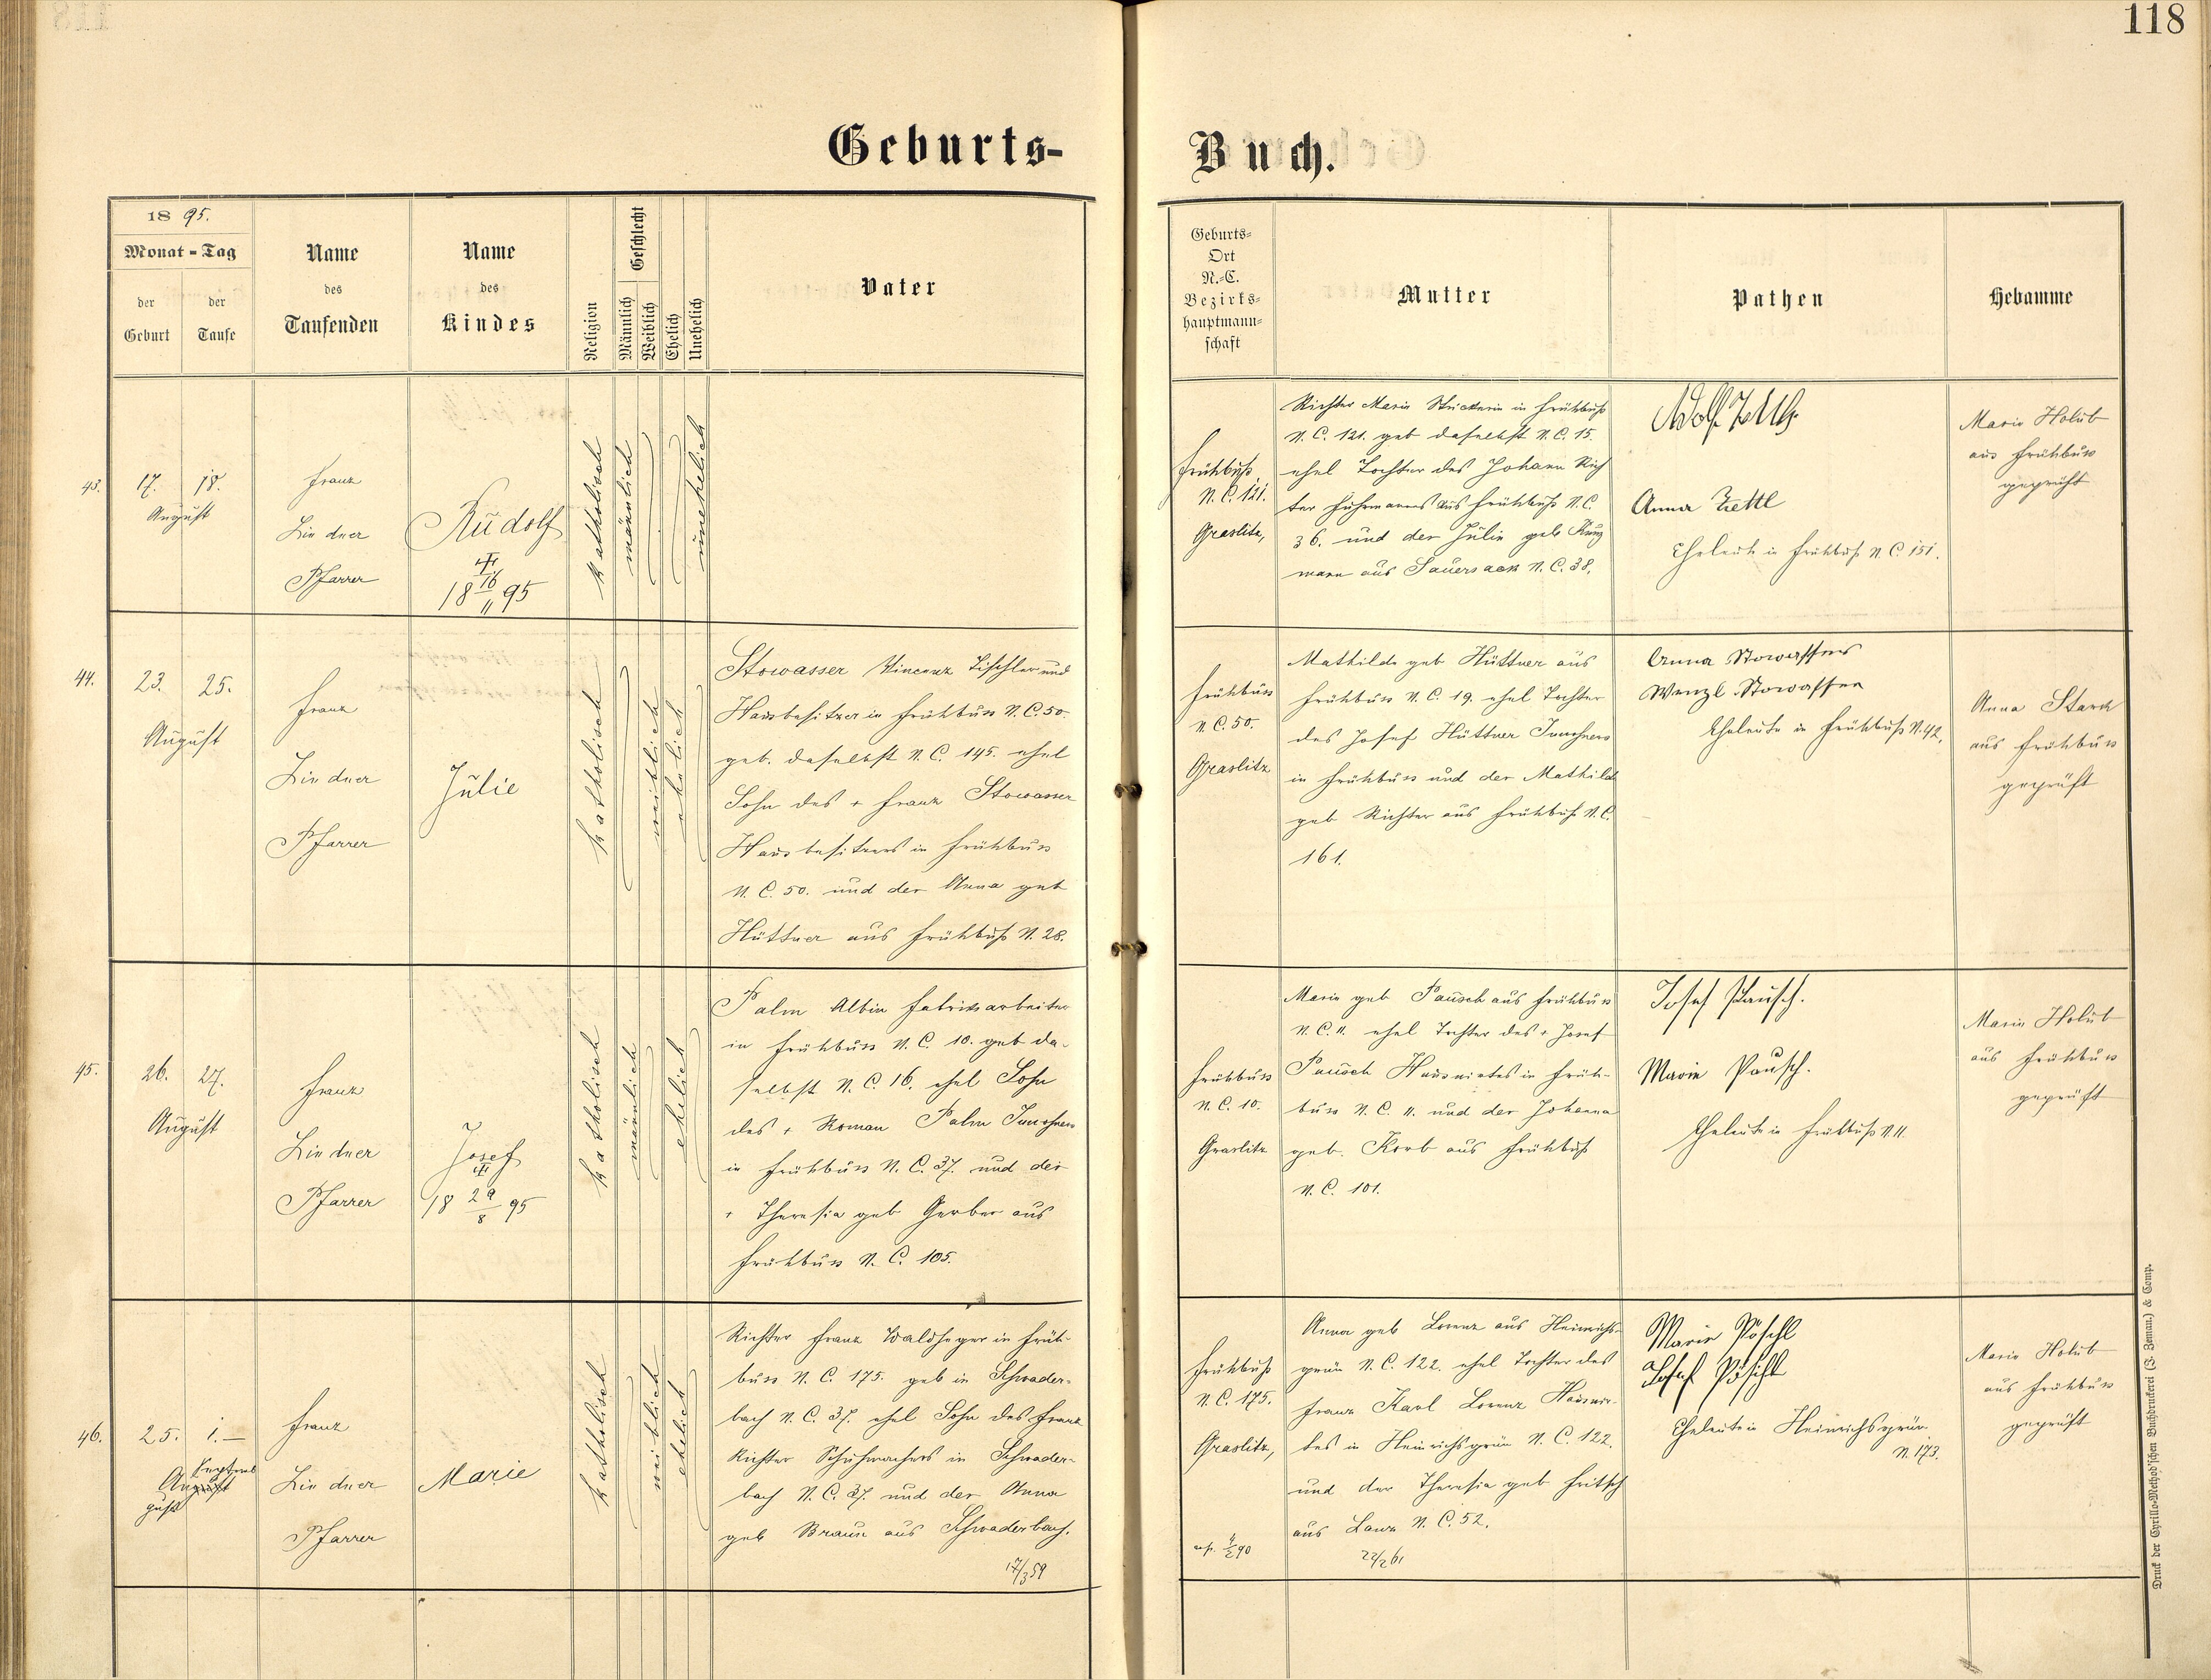 118
Geburts-Buch.
18 95.
Monat - Tag
der Geburt
der Taufe
Name des Taufenden
Name des Kindes
Religion
Geschlecht
Männlich
Weiblich
Ehelich
Unehelich
Vater
Geburts-
Ort
N.-C.
Bezirks-
hauptmann-
schaft
Mutter
Pathen
Hebamme
43.
17. 18.
August
Franz
Lindner
Pfarrer
Rudolf
18 16/11 95
katholisch
männlich
unehelich
Frühbuß
N. C. 121.
Graslitz,
Richter Marie Stickerin in Frühbuß
N. C. 121. geb daselbst N. C. 15.
ehel Tochter des Johann Rich
ter Fuhrmanns aus Frühbuß N. C.
36. und der Julie geb Kunz
mann aus Sauersack N. C. 38.
Adolf Zettl
Anna Zettl
Eheleute in Frühbuß N. C. 151.
Marie Holub
aus Frühbuss
geprüft
44.
23. 25.
August
Franz
Lindner
Pfarrer
Julie
katholisch
weiblich
ehelich
Stowasser Vincenz Tischler und
Hausbesitzer in Frühbuss N. C. 50.
geb. daselbst N. C. 145. ehel
Sohn des + Franz Stowasser
Hausbesitzers in Frühbuss
N. C. 50. und der Anna geb
Hüttner aus Frühbuß N. 28.
Frühbuss
N. C. 50.
Graslitz
Mathilde geb Hüttner aus
Frühbuss N. C. 19. ehel Tochter
des Josef Hüttner Inwohners
in Frühbuss und der Mathild
geb Richter aus Frühbuß N. C.
161.
Anna Stowasser
Wenzl Stowasser
Eheleute in Frühbuß N. 42.
Anna Stark
aus Frühbuss
geprüft
45.
26. 27.
August
Franz
Lindner
Pfarrer
Josef
18 29/8 95
katholisch
männlich
ehelich
Palm Albin Fabriksarbeiter
in Frühbuss N. C. 10. geb da-
selbst N. C. 16. ehel Sohn
des + Roman Palm Inwohners
in Frühbuss N. C. 37. und der
+ Theresia geb Gerber aus
Frühbuss N. C. 105.
Frühbuss
N. C. 10.
Graslitz
Marie geb Pausch aus Frühbuss
N. C. 11. ehel Tochter des + Josef
Pausch Hauswirtes in Früh-
buss N. C. 11. und der Johanna
geb. Korb aus Frühbuß
N. C. 101.
Josef Pausch.
Marie Pausch.
Eheleute in Frühbuß N. 11.
Marie Holub
aus Frühbuss
geprüft
46.
25. 1.—
August Septemb
Franz
Lindner
Pfarrer
Marie
katholisch
weiblich
ehelich
Richter Franz Waldheger in Früh-
buss N. C. 175. geb in Schwader-
bach N. C. 37. ehel Sohn des Franz
Richter Schuhmachers in Schwader-
bach N. C. 37. und der Anna
geb Braun aus Schwaderbach.
17/3 59
Frühbuß
N. C. 175.
Graslitz,
Anna geb Lorenz aus Heinrichs-
grün N. C. 122. ehel Tochter des
Franz Karl Lorenz Hauswir-
tes in Heinrichsgrün N. C. 122.
und der Theresia geb Fritsch
aus Lauz N. C. 52.
22/2 61
Marie Pöschl
Josef Pöschl
Eheleute in Heinrichsgrün
N. 173.
Marie Holub
aus Frühbuss
geprüft
Druck der Cyrillo-Method'schen Buchdruckerei (J. Zeman.) & Comp.